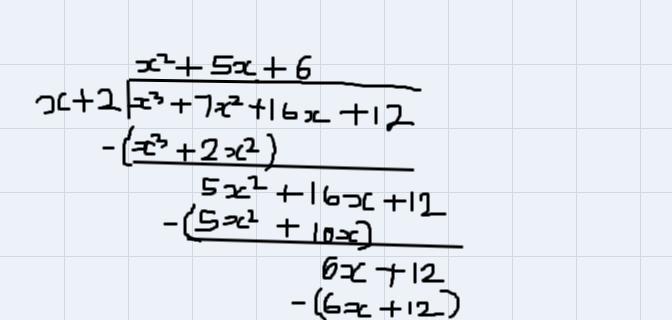 x² + 5x + 6
x+2 x³ + 7x² + 16x + 12
-(x³ + 2x²)
5x² + 16x + 12
-(5x² + 10x)
6x + 12
-(6x + 12)